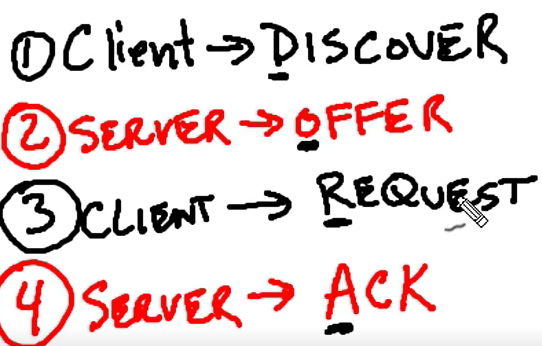 ① Client → DISCOVER
② SERVER → OFFER
③ CLIENT → REQUEST
④ SERVER → ACK